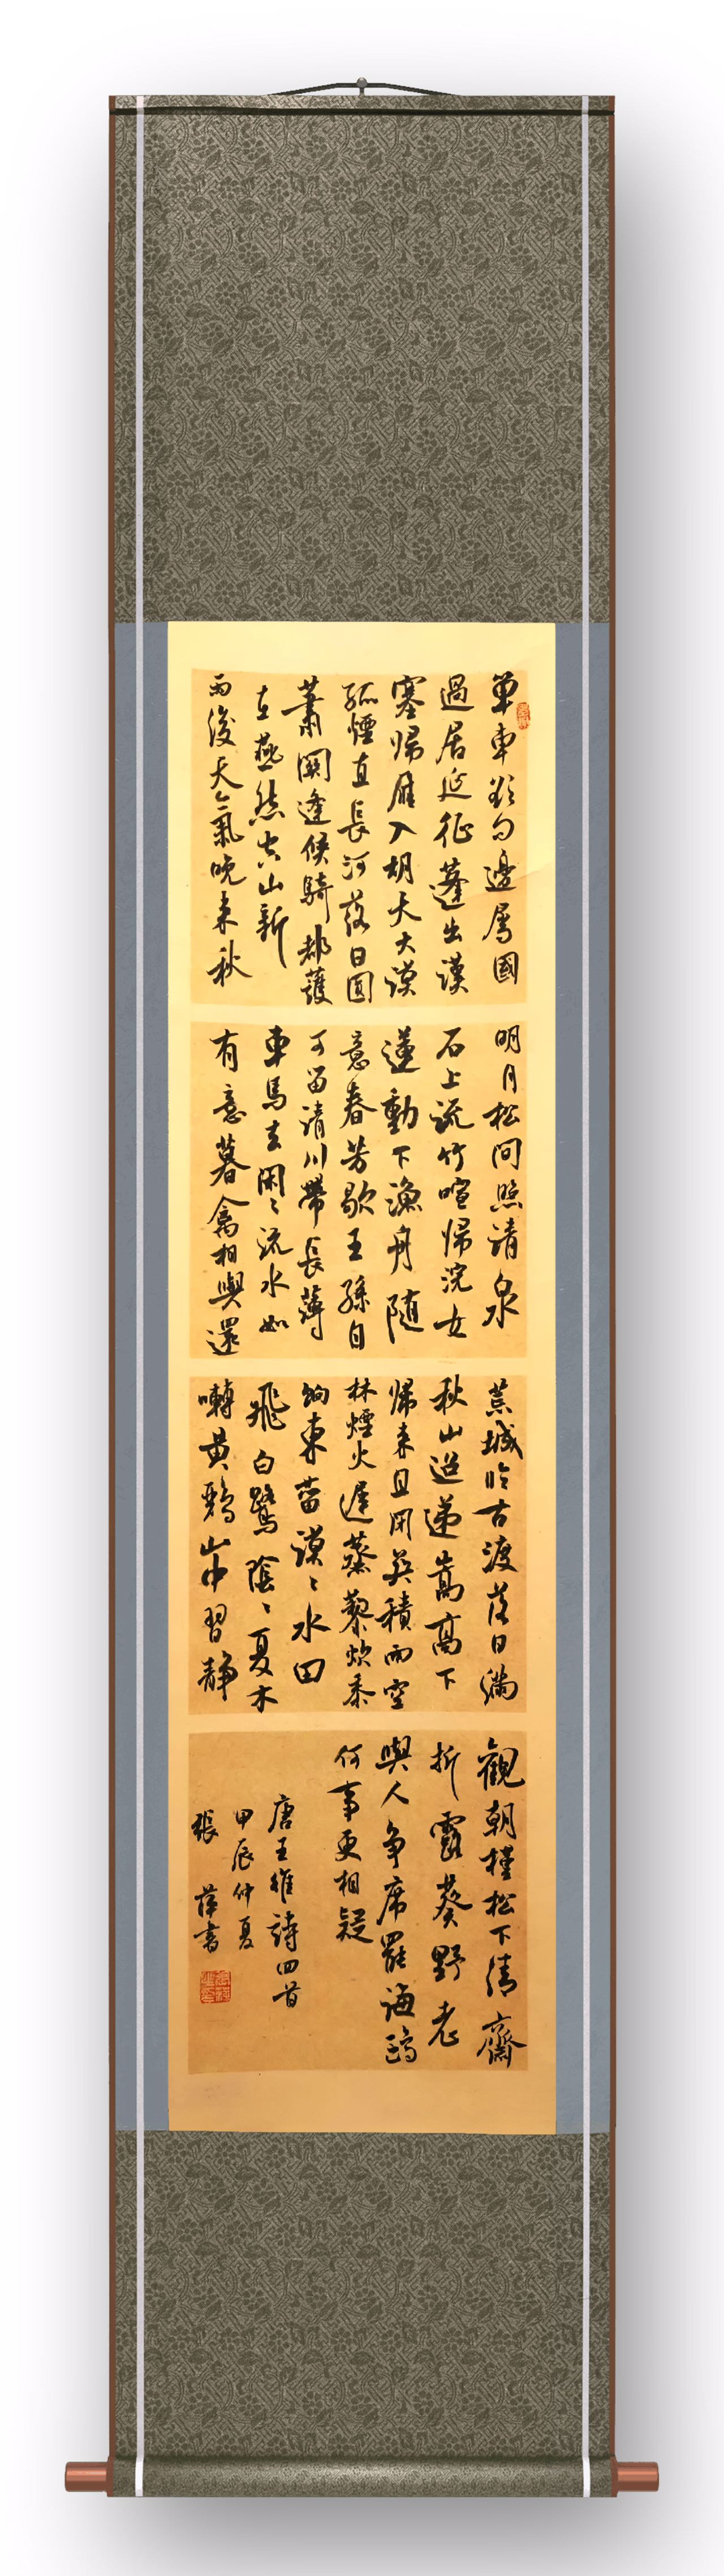 單車欲問邊屬國
過居延征蓬出漢
塞歸雁入胡天大漠
孤煙直長河落日圓
蕭關逢候騎都護
在燕然空山新
雨後天氣晚來秋
明月松間照清泉
石上流竹喧歸浣女
蓮動下漁舟隨
意春芳歇王孫自
可留清川帶長薄
車馬去閑〻流水如
有意暮禽相與還
荒城臨古渡落日滿
秋山迢遞嵩高下
歸來且閉關積雨空
林煙火遲蒸藜炊黍
餉東菑漠〻水田
飛白鷺陰〻夏木
囀黃鸝山中習靜
觀朝槿松下清齋
折露葵野老
與人爭席罷海鷗
何事更相疑
唐王維詩四首
甲辰仲夏
張 書